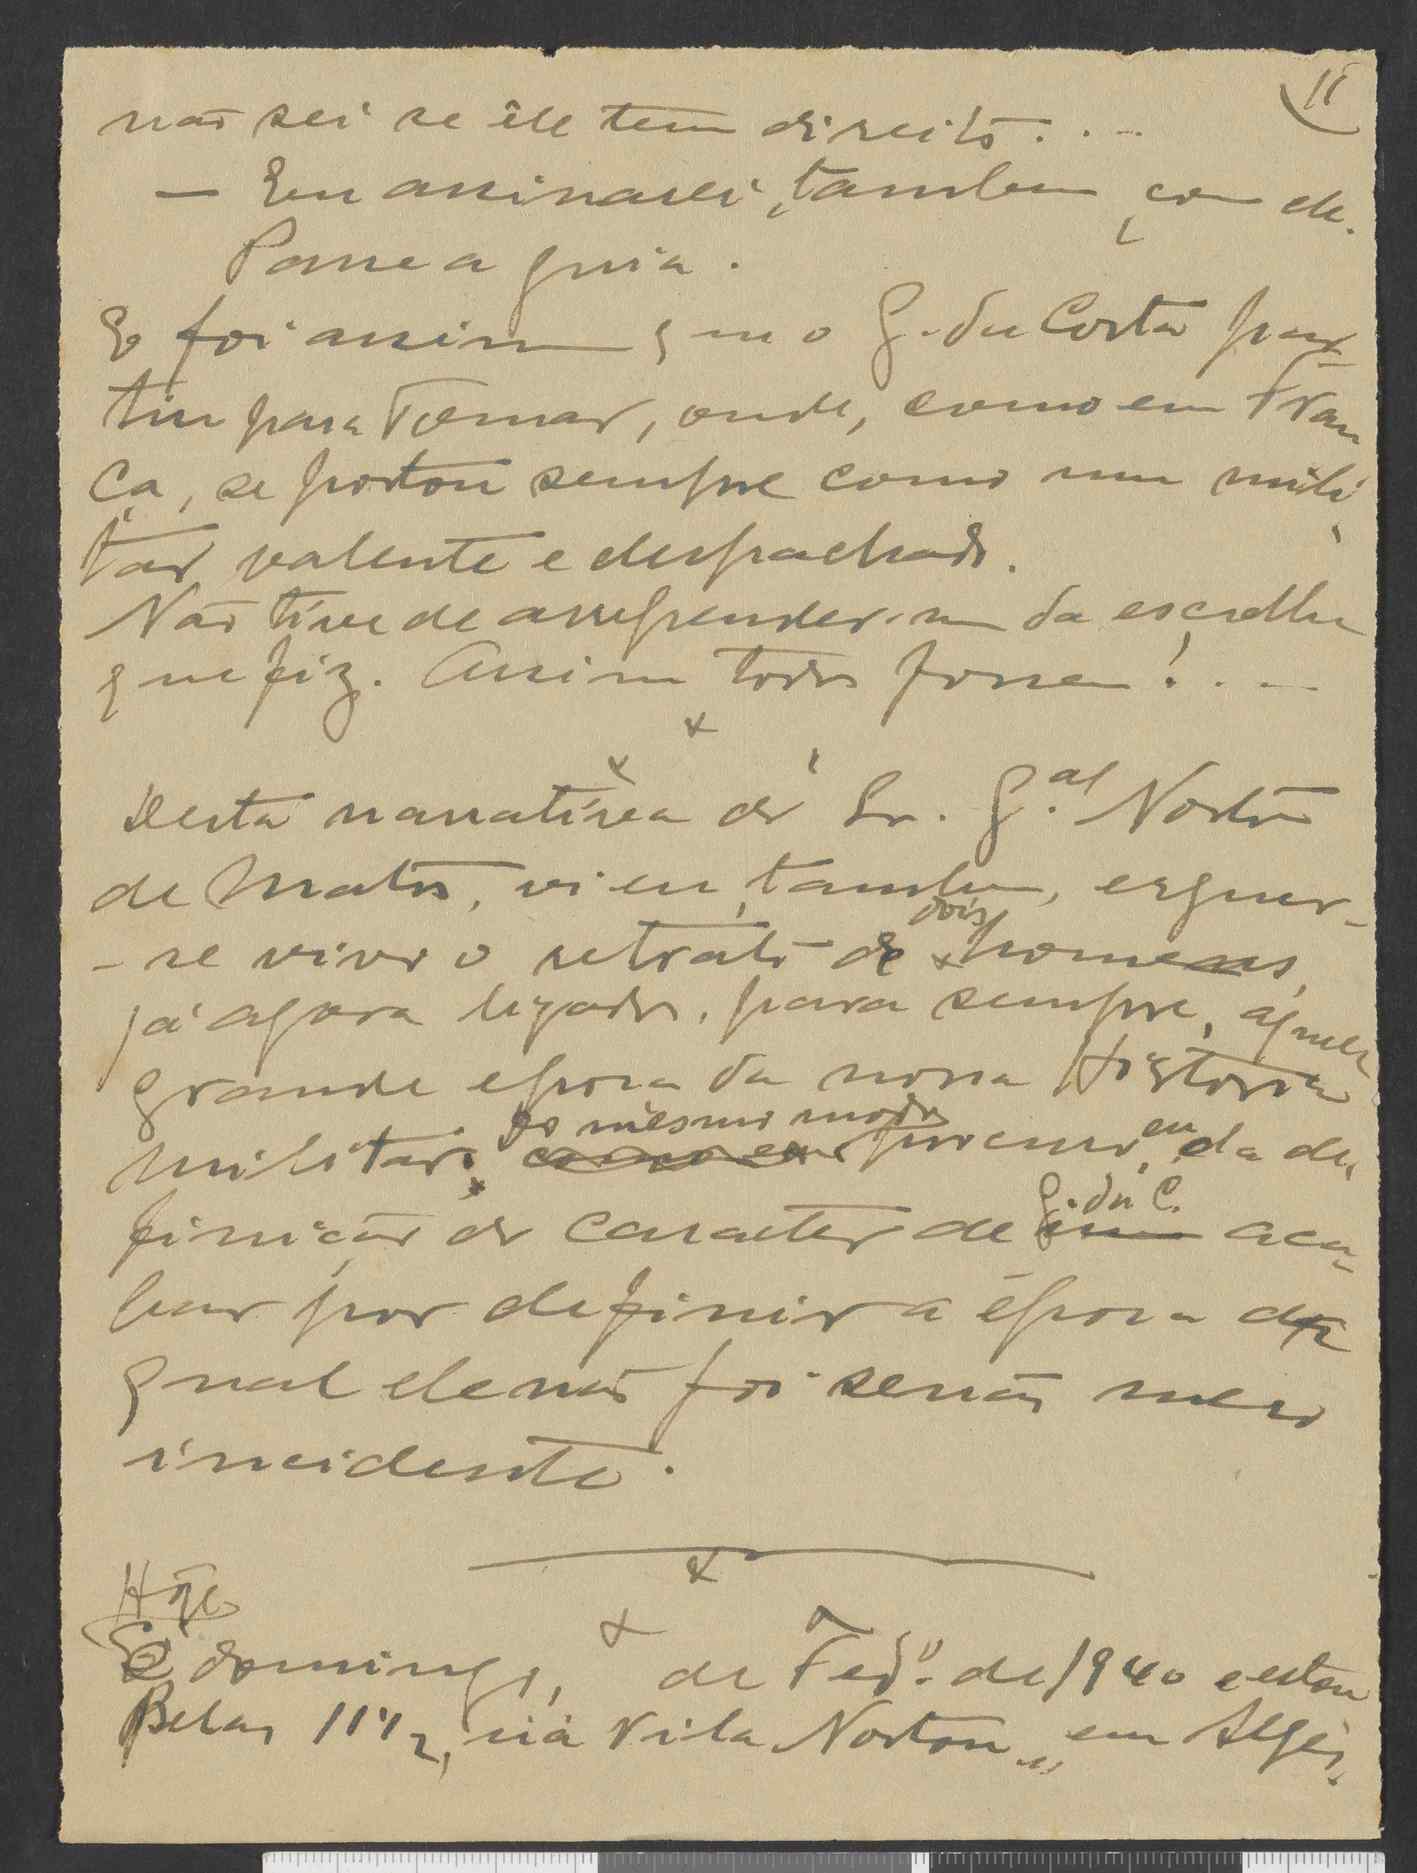 11
não sei se êle tem direito...
— Eu assinarei, tambem, com ele.
Passe a guia.
E foi assim que o G. da Costa par-
tiu para Tomar, onde, como em Fran
ça, se portou sempre como um mili
tar valente e despachado.
Não tive de arrepender-me da escolha
que fiz. Assim todos fossem!...
x
x
Desta narrativa do Sr. G.al Norton
de Matos, vi eu, tambem, erguer-
-se vivo o retrato de dois homens,
já agora ligados, para sempre, áquela
grande epoca da nossa Historia
militar. Do mesmo modo procuro eu, da de
finição do caracter de G. da C. aca-
bar por definir a época da
qual ele não foi senão mero
incidente.
x
x
Hoje
domingo, de Fev.º de 1940 e estou
11 1/2, na Vila Norton, em Algés.